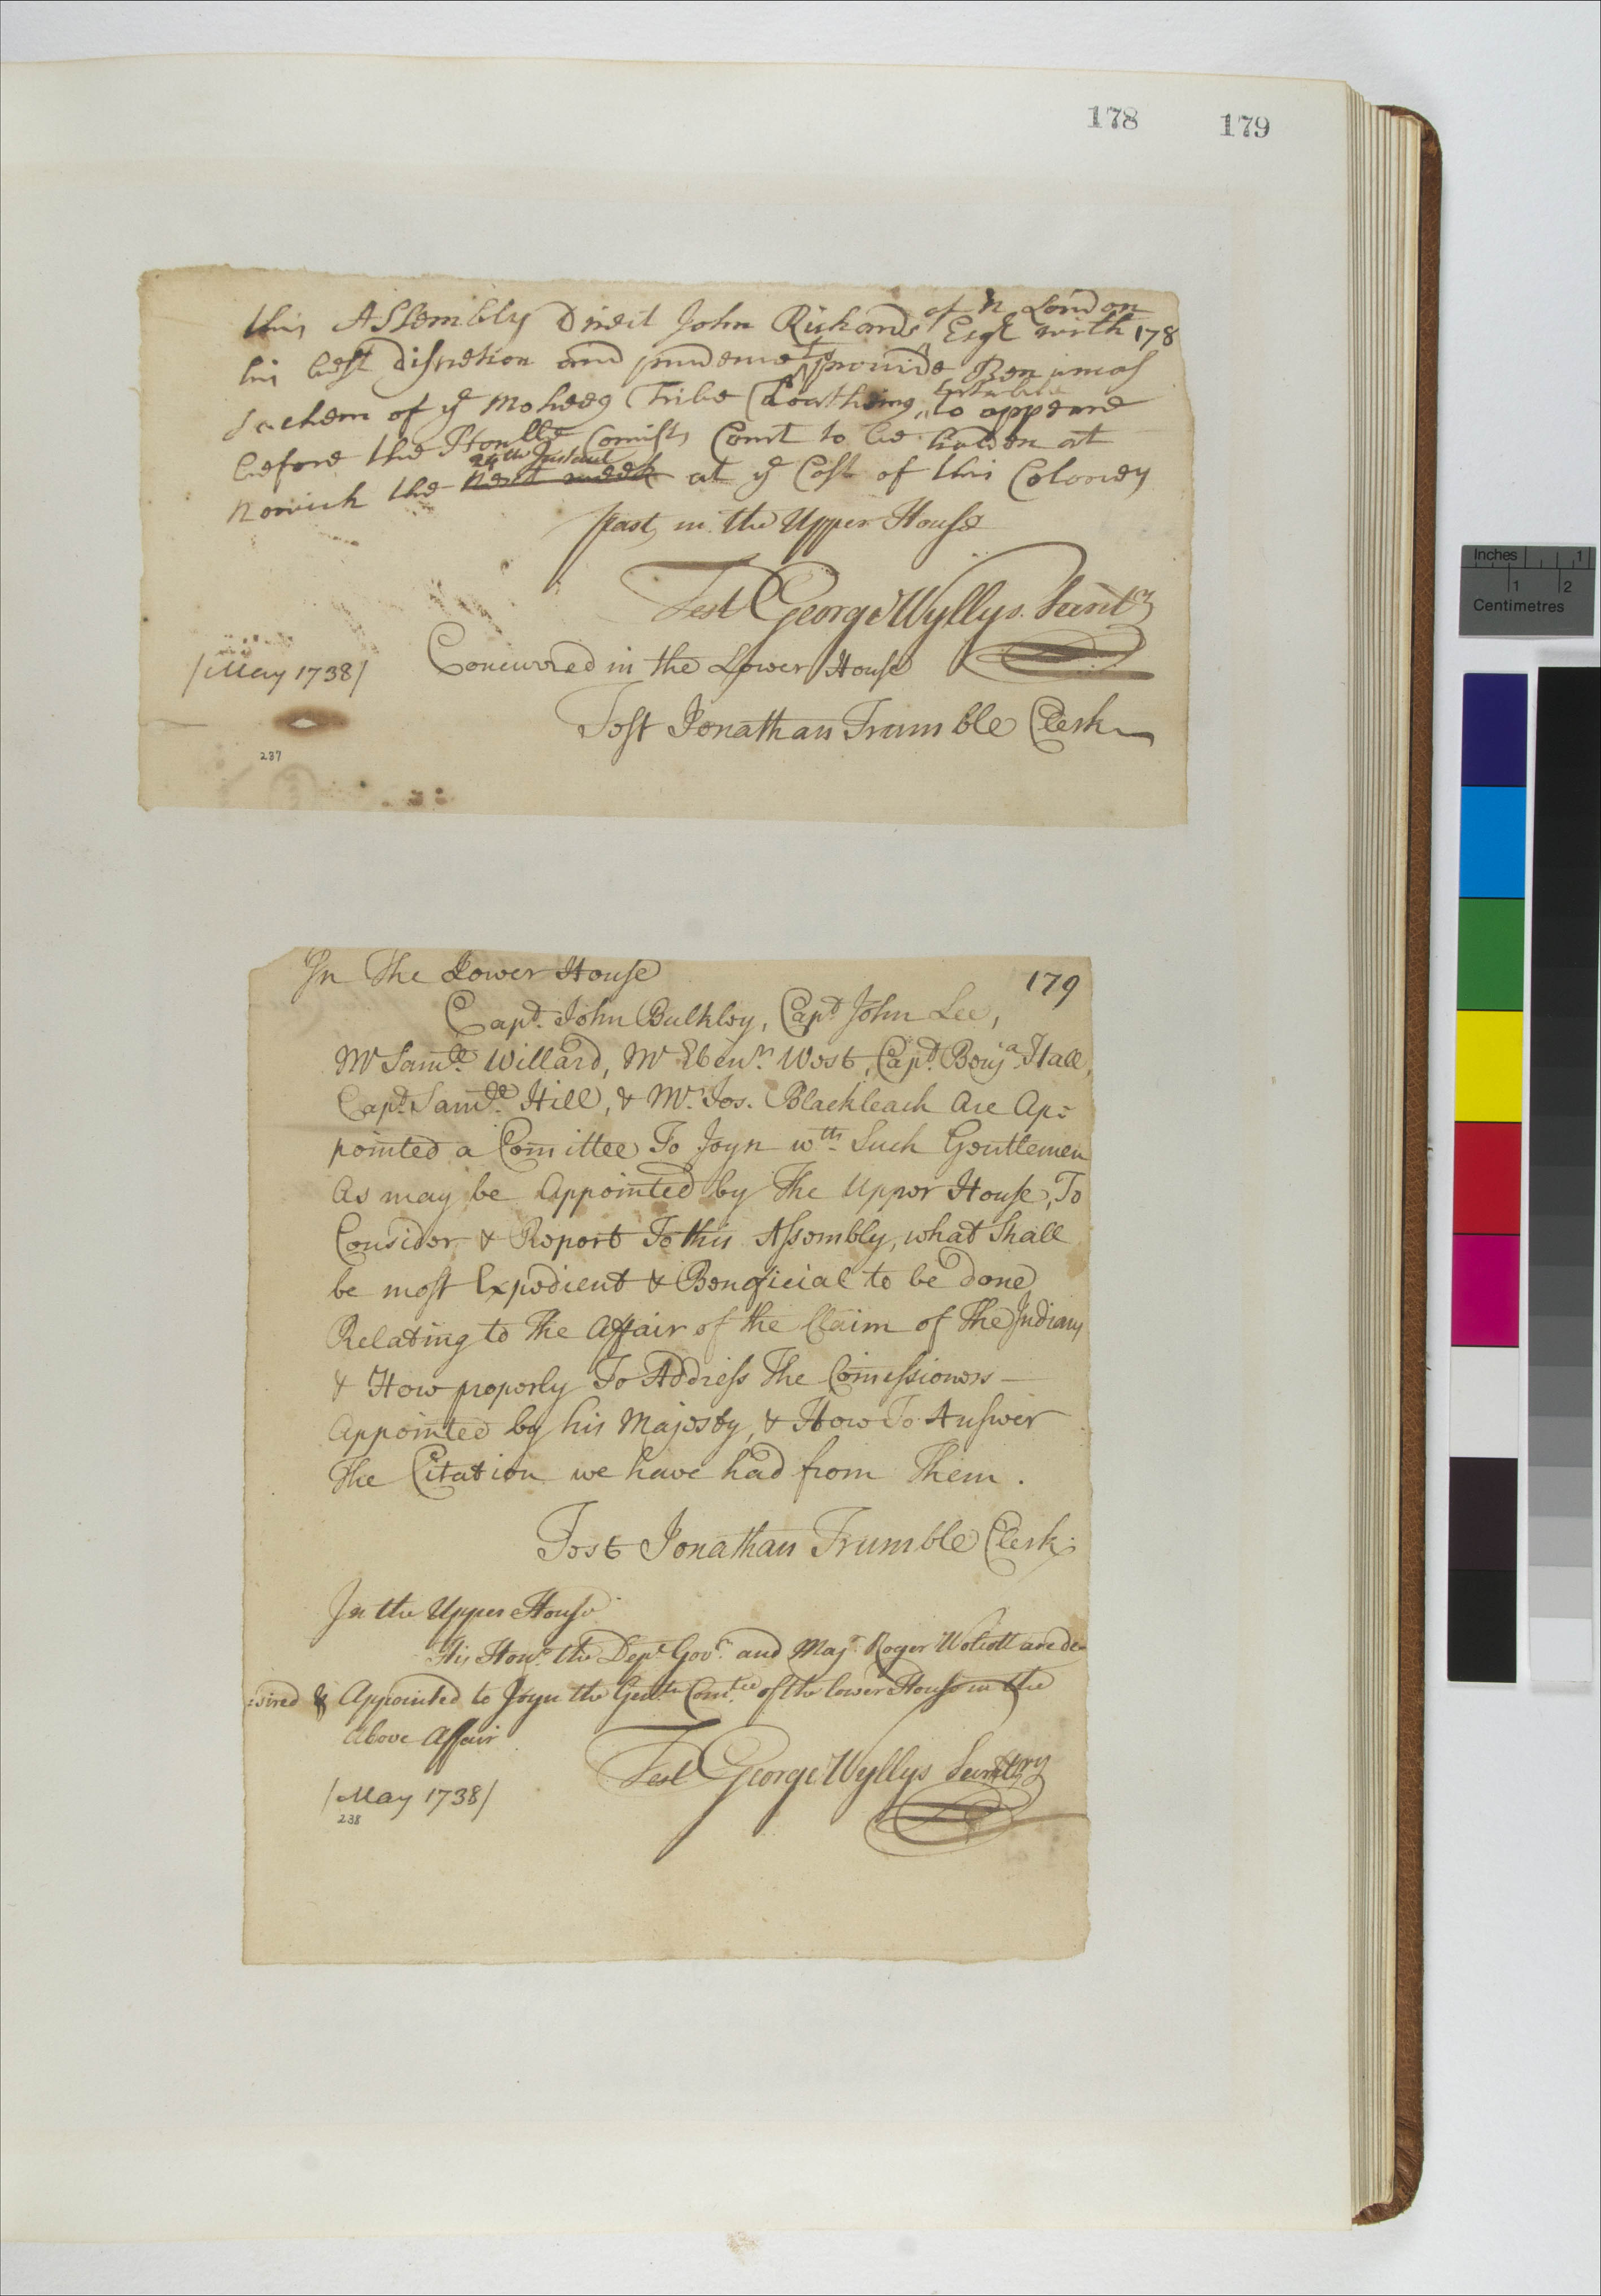 178 179
of N London
this Assembly Direit John Richards Esqr with 178
his best discretion and prudence to provide Ben uncas
Sachem of ye Moheeg Tribe Cloathing suitable to appeare
before the Honlle Comiss Court to be holden at
24th Instant
Norwich the next week at ye Cost of this Coloney
past in the Upper House
Test George Wyllys Secretry
/May 1738/ Concurred in the Lower House
Test Jonathan Trumble Clerk
287
In The Lower House 179
Capt. John Bulkley, Capt John Lee,
Mr Samll Willard, Mr Ebenr West, Capt Benja Hall,
Capt Samll Hill, & Mr Jos. Blackleach Are Ap=
pointed a Comittee To Joyn wth Such Gentlemen
As may be Appointed by The Upper House, To
Consider & Report To this Assembly, what Shall
be most Expedient & Beneficial to be done
Relating to The Affair of the Claim of The Indians
& How properly To Address The Comissioners —
Appointed by his Majesty, & How To Answer
The Citation we have had from Them.
Test Jonathan Trumble Clerk
In the Upper House
His Honr the Depty Govr and Majr Roger Wolcott are de-
sired & Appointed to Joyn the Gentn Comtee of the lower House in the
above Affair
Test George Wyllys Secretry
/May 1738/
238
Inches 1
1 2
Centimetres